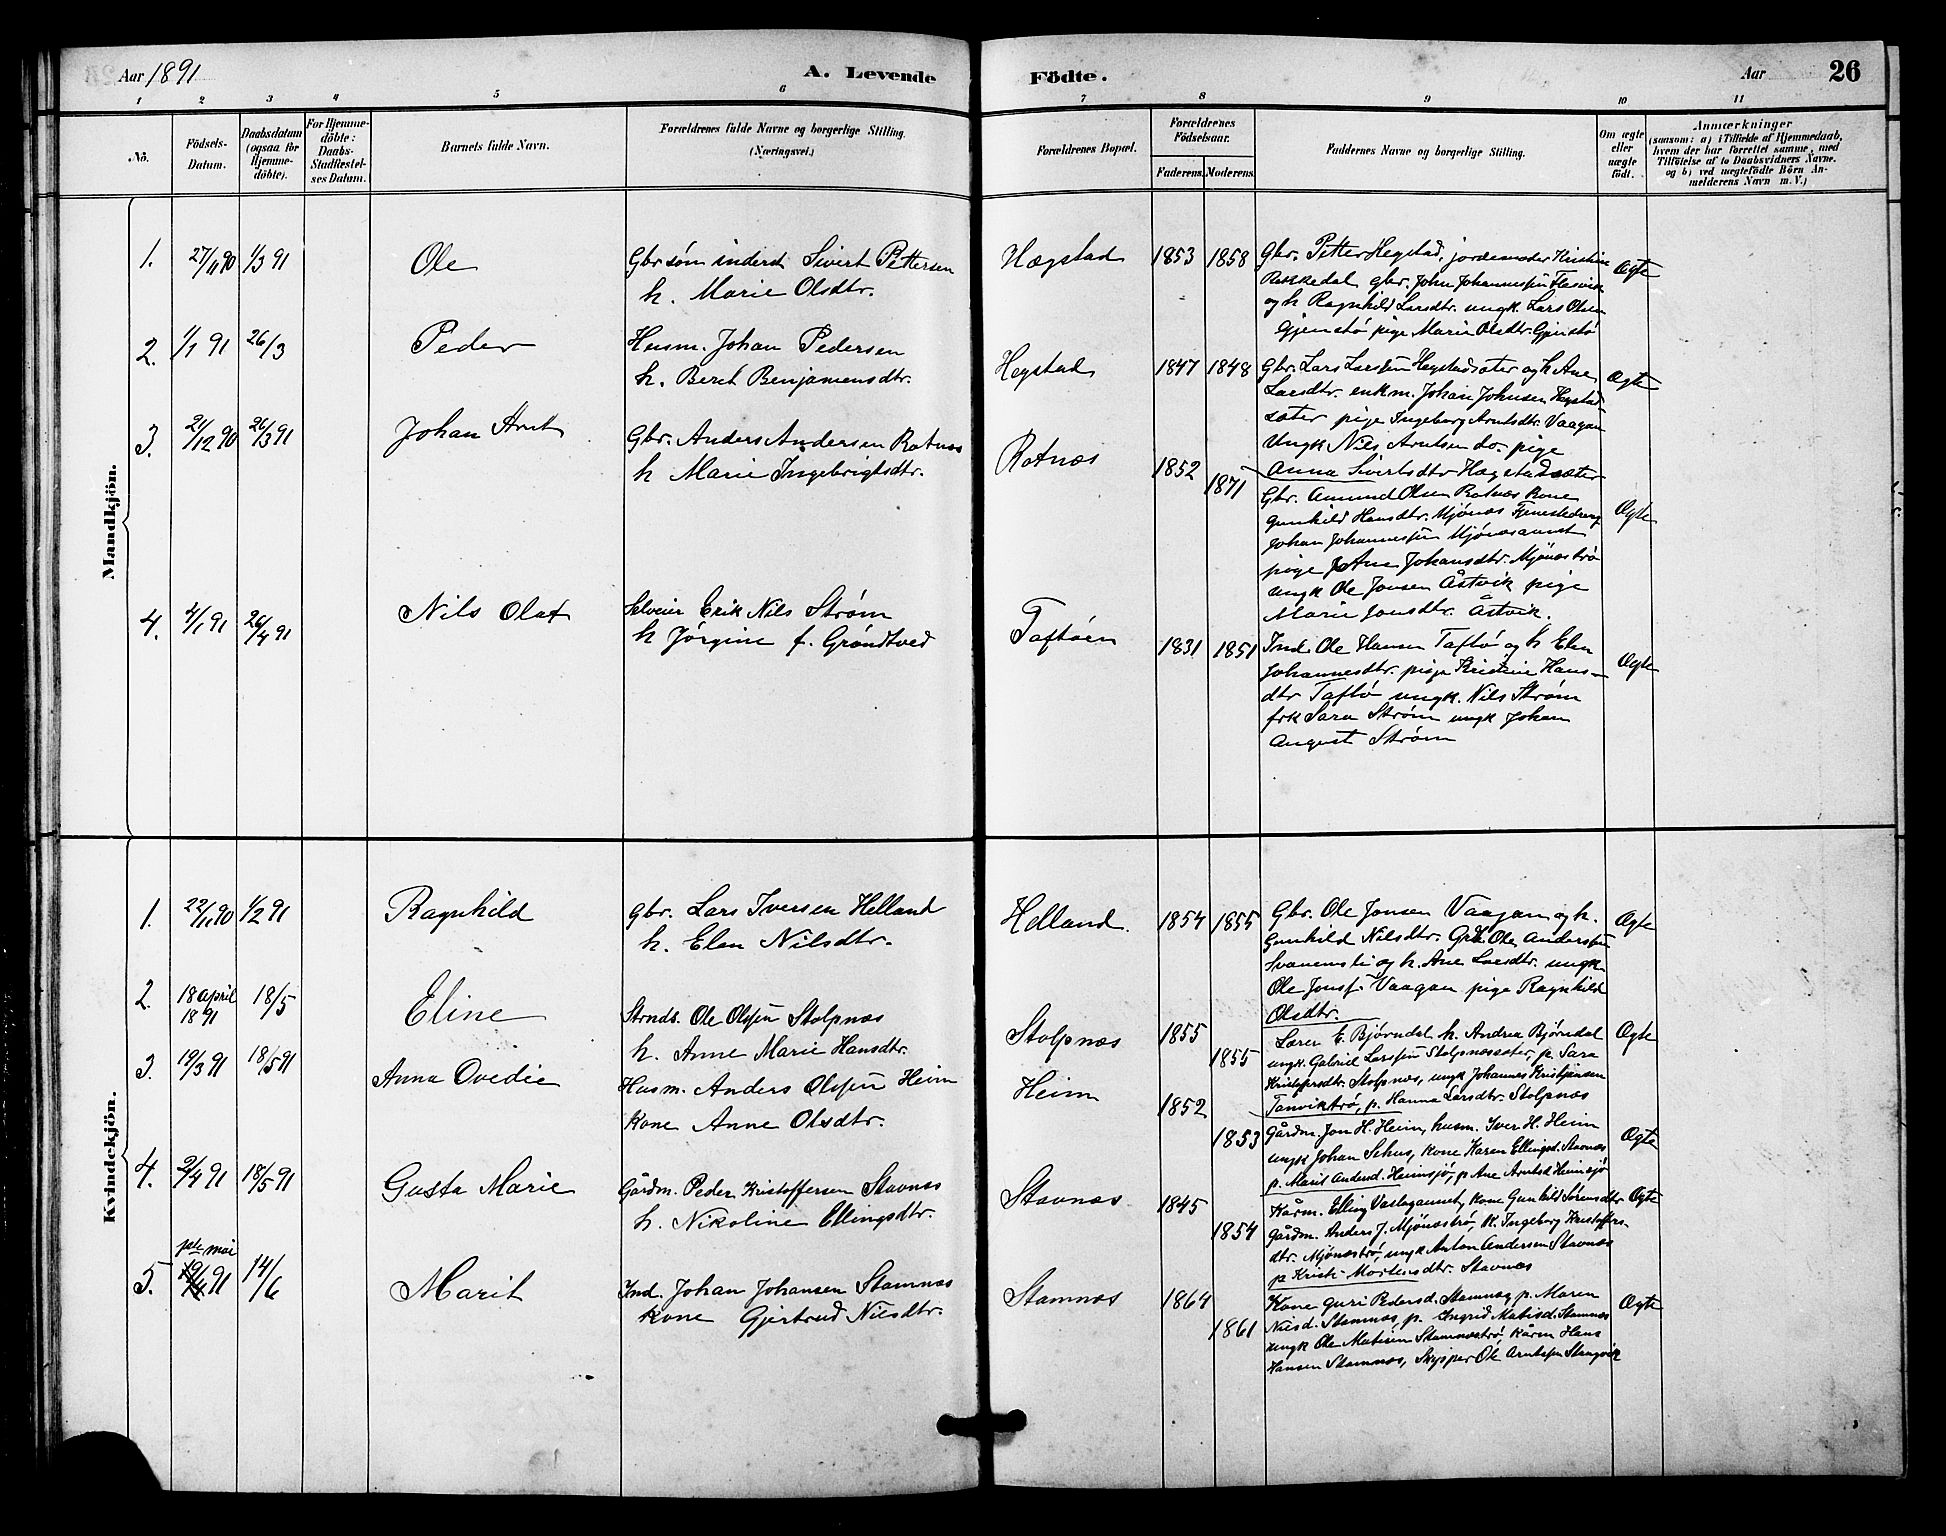 Aar 1891
A. Levende
Födte.
Aar
26
1 2 3 4 5 6 7 8 9 10 11
No.
Födsels-
Datum.
Daabsdatum
(ogsaa for
Hjemme-
döbte).
For Hjemme-
döbte:
Daabs-
Stadfæstel-
ses Datum.
Barnets fulde Navn.
Forældrenes fulde Navne og borgerlige Stilling.
(Næringsvei.)
Forældrenes Bopæl.
Forældrenes
Födselsaar.
Faderens. Moderens.
Faddernes Navne og borgerlige Stilling.
Om ægte
eller
uægte
födt.
Anmærkninger
(saasom: a) i Tilfælde af Hjemmedaab,
hvem der har forrettet samme, med
Tilföielse af to Daabsvidners Navne.
og b) ved uægtefödte Börn An-
melderens Navn m. V.)
Mandkjön.
1. 27/11 90 1/3 91 Ole
Gbrsøn inderst Sivert Pettersen
h. Marie Olsdtr.
Hægstad 1853 1858
Gbr. Petter Hegstad, jordemoder Kristine
Rekkedal gbr. John Johannessen
og h Ragnhild Larsdtr. ungk. Lars Olsen
Gjenstø pige Marie Olsdtr. Gjenstø
Ægte
2. 1/1 91 26/3 Peder
Husm. Johan Pedersen
h. Beret Benjamensdtr.
Hegstad 1847 1848
Gbr. Lars Larssen Hegstadsæter og h Ane
Larsdtr. enkm. Johan Johnsen Hegstad-
sæter pige Ingeborg Arntsdtr. Vaagan
Ungk Nils Arntsen do. pige
Anna Sivertsdtr Hægstadsæter
Ægte
3. 21/12 90 26/3 91 Johan Arnt
Gbr. Anders Andersen Rotnæs
h Marie Ingebrigtsdtr.
Rotnæs 1852 1871
Gbr. Amund Olsen Rotnæs kone
Gunhild Hansdtr. Mjönæs
Johan Johannessen
pige Ane Johansdtr. Mjönæstrø
ungk Ole Jonsen Åstvik pige
Marie Jonsdtr. Åstvik.
Ægte
4. 4/1 91 26/4 91 Nils Olaf
Selveier Erik Nils Strøm
h Jørgine f. Grøndtved
Taftøen 1831 1851
Ind. Ole Hansen Taftø og h Elen
Johannesdtr. pige Kristine Hans-
dtr Taftø ungk. Nils Strøm
frk Sara Strøm ungk Johan
August Strøm
Ægte
Kvindekjön.
1. 22/11 90 1/2 91 Ragnhild
Gbr. Lars Iversen Helland
h. Elen Nilsdtr.
Helland. 1854 1855
Gbr. Ole Jonsen Vaagan og h.
Gunhild Nilsdtr. Gbr. Ole Anderssen
Svanemsli og h. Ane Larsdtr. ungk
Ole Jonsf Vaagan pige Ragnhild
Olsdtr.
Ægte
2. 18 april 1891 18/5 Eline
Strnds. Ole Olssen Stolpnæs
h. Anne Marie Hansdtr.
Stolpnæs 1855 1855
Lærer E. Bjørndal h. Andrea Bjørndal
ungk. Gabriel Larssen Stolpnæssæter, p. Sara
Kristofersdtr. Stolpnæs, ungk Johannes Kristjansen
Tanviktrø, p. Hanna Larsdtr. Stolpnæs
Ægte
3. 19/3 91 18/5 91 Anna Ovedie
Husm. Anders Olssen Heim
kone Anne Olsdtr.
Heim 1852 1853
Gårdm. Jon H. Heim, husm. Iver H. Heim
ungk Johan Sehus, kone Karen Ellingsd. Stavnæs
p. Marit Andersd. Heimsjø, p Ane Arntsd Heimsjø
Ægte
4. 2/4 91 18/5 91 Gusta Marie
Gårdm. Peder Kristoffersen Stavnæs
h. Nikoline Ellingsdtr.
Stavnæs 1845 1854
Kårm. Elling Vaslagaunet, kone Gunhild Sørensdtr
Gårdm. Anders J. Mjönæstrø, k. Ingeborg Kristoffers-
dtr. Mjönæstrø, ungk Anton Andersen Stavnæs
p Krist. Mortensdtr. Stavnæs
Ægte
5. 1ste mai 91 14/6 Marit
Ind. Johan Johansen Stamnæs
kone Gjertrud Nilsdtr.
Stamnæs 1864 1861
Kone Guri Pedersd. Stamnæs, p. Maren
Nilsd. Stamnæs, p. Ingrid Matisd. Stamnæs
ungk Ole Matisen Stamnæstrø, kårm Hans
Hansen Stamnæs, Skipper Ole Arntssen Stangvik
Ægte